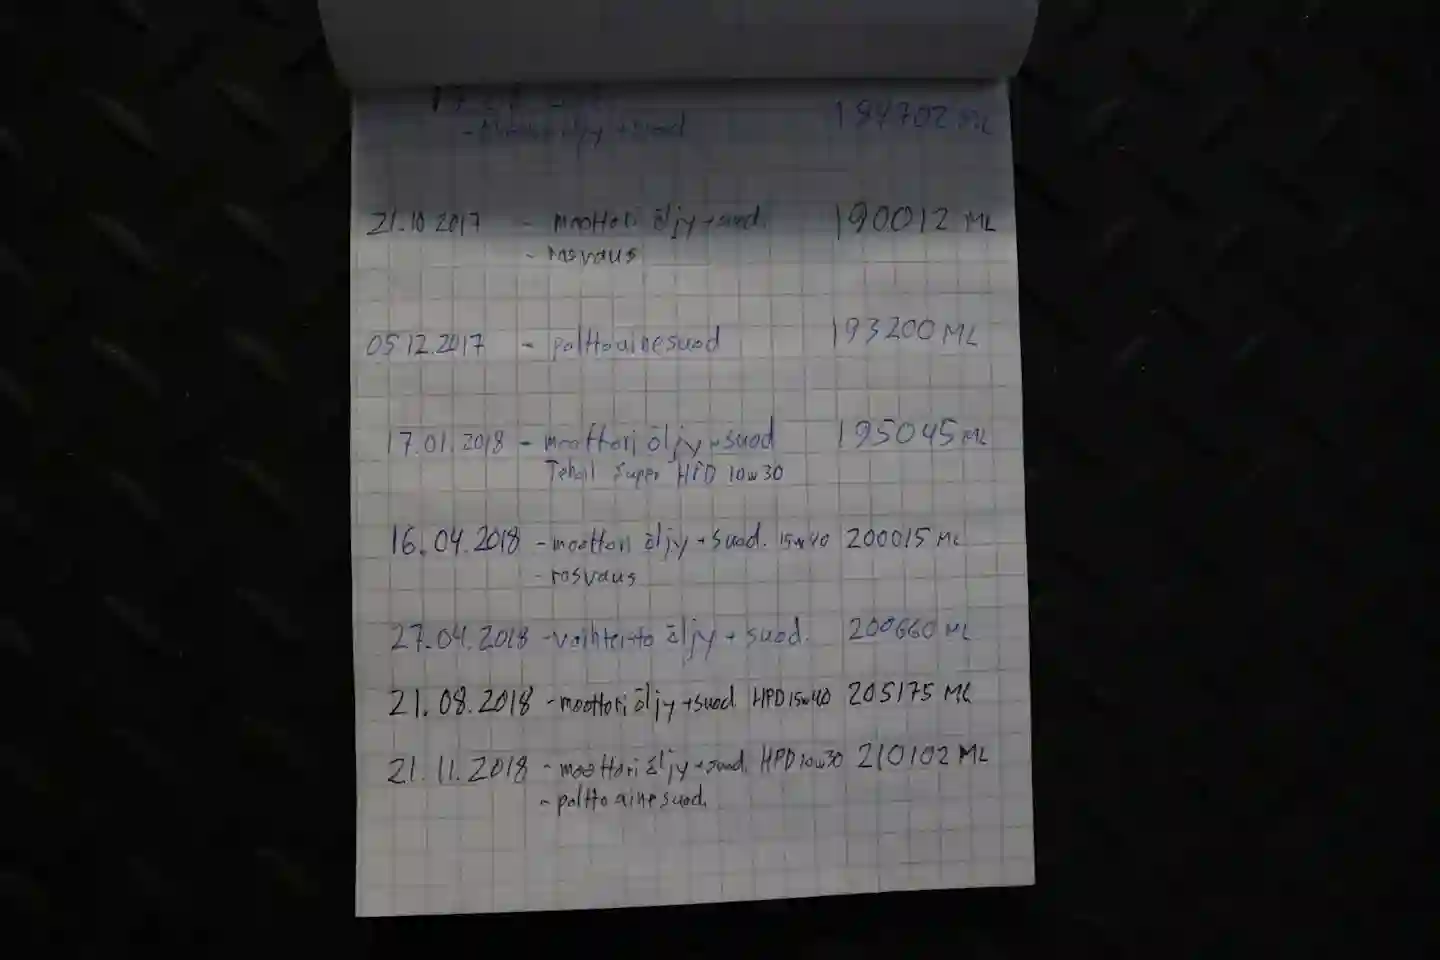 öljy + suod 184702 ML
21.10 2017 - moottori öljy + suod. 190012 ML
- rasvaus
05.12.2017 - polttoainesuod 193200 ML
17.01.2018 - moottori öljy + suod 195045 ML
Tehoil Super HPD 10w30
16.04.2018 - moottori öljy + suod. 15w40 200015 ML
- rasvaus
27.04.2018 - vaihteisto öljy + suod. 200660 ML
21.08.2018 - moottori öljy + suod. HPD 15w40 205175 ML
21.11.2018 - moottori öljy + suod. HPD 10w30 210102 ML
- polttoainesuod.